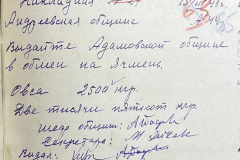 Накладная
Андреевская община
Выдайте Адамовской общине
в обмен на Ячмень.
Овса 2500 кгр.
Две тысячи пятьсот кгр.
Шеф общины:
Секретарь:
Выдал: